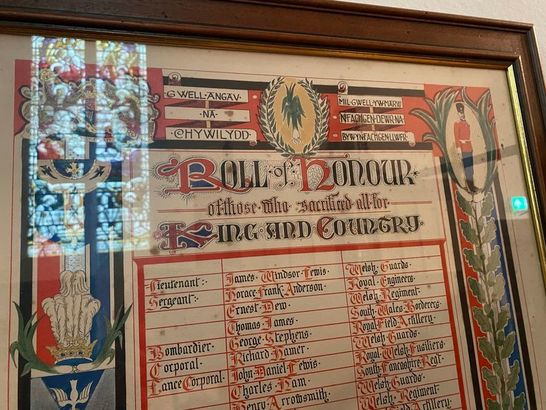 GWELL ANGAV
NA
CHYWILYDD
MIL GWELL YW MARW
N FACHGEN DEWR NA
BYW YN FACHGEN LLWFR
Roll of Honour
of those who sacrificed all for
King and Country
Lieutenant: James Windsor Lewis Welsh Guards
Sergeant: Horace Frank Anderson Royal Engineers
Ernest Dew Welsh Regiment
Thomas James South Wales Borderers
George Stephens Royal Field Artillery
Bombardier Richard Hamer Royal Welsh Fusiliers
Corporal John Daniel Lewis South Lancashire Regt
Lance Corporal Charles Ham Welsh Guards
Henry Arrowsmith Welsh Regiment
Royal Field Artillery